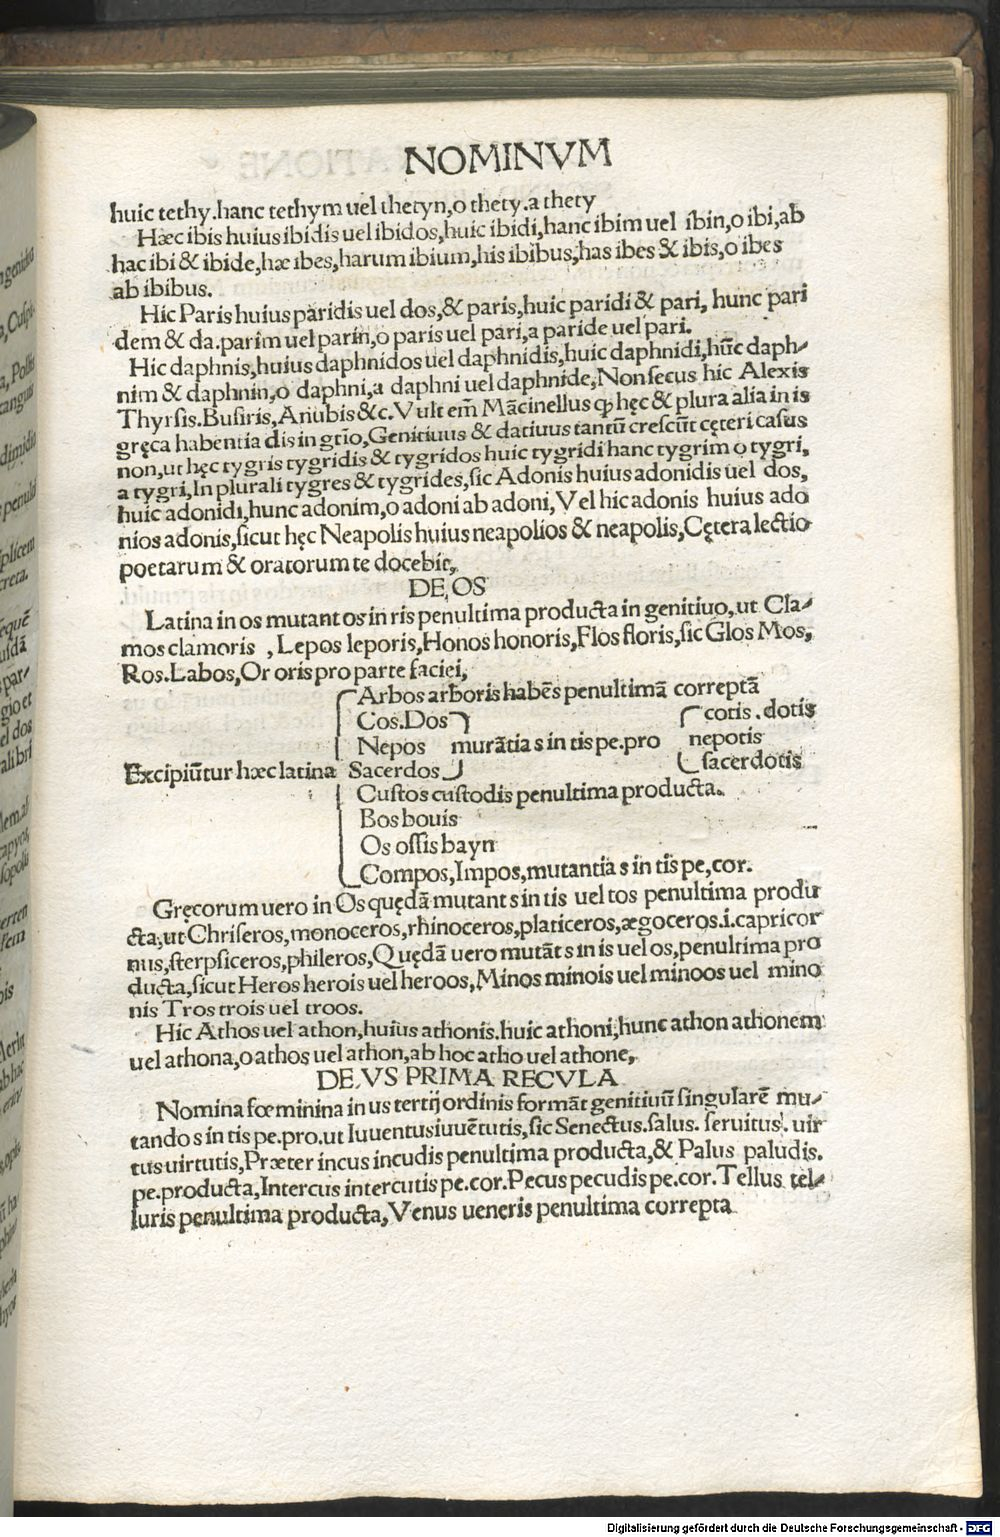 NOMINVM
huic tethy.hanc tethym uel thetyn,o thety.a thety
Hæc ibis huius ibidis uel ibidos,huic ibidi,hanc ibim uel ibin,o ibi,ab
hac ibi & ibide,hæ ibes,harum ibium,his ibibus,has ibes & ibis,o ibes
ab ibibus.
Hic Paris huius paridis uel dos,& paris,huic paridi & pari, hunc pari
dem & da.parim uel parin,o paris uel pari,a paride uel pari.
Hic daphnis,huius daphnidos uel daphnidis,huic daphnidi,hūc daph-
nim & daphnin,o daphni,a daphni uel daphnide,Non secus hic Alexis
Thyrsis.Busiris,Anubis &c.Vult em̄ Mācinellus ꝙ hęc & plura alia in is
gręca habentia dis in gtīo,Genitiuus & datiuus tantū crescūt cęteri casus
non,ut hęc tygris tygridis & tygridos huic tygridi hanc tygrim o tygri,
a tygri,In plurali tygres & tygrides,sic Adonis huius adonidis uel dos,
huic adonidi,hunc adonim,o adoni ab adoni,Vel hic adonis huius ado
nios adonis,sicut hęc Neapolis huius neapolios & neapolis,Cętera lectio
poetarum & oratorum te docebit,
DE OS
Latina in os mutant os in ris penultima producta in genitiuo,ut Cla-
mos clamoris , Lepos leporis,Honos honoris,Flos floris,sic Glos Mos,
Ros.Labos,Or oris pro parte faciei,
Arbos arboris habēs penultimā correptā
Cos.Dos cotis.dotis
Nepos murātia s in tis pe.pro nepotis
Excipiūtur hæc latina Sacerdos sacerdotis
Custos custodis penultima producta.
Bos bouis
Os ossis bayn
Compos,Impos,mutantia s in tis pe,cor.
Gręcorum uero in Os quędā mutant s in tis uel tos penultima produ
cta,ut Chriseros,monoceros,rhinoceros,platiceros,ægoceros.i.capricor
nus,sterpsiceros,phileros,Quędā uero mutāt s in is uel os,penultima pro
ducta,sicut Heros herois uel heroos,Minos minois uel minoos uel mino
nis Tros trois uel troos.
Hic Athos uel athon,huius athonis.huic athoni,hunc athon athonem
uel athona,o athos uel athon,ab hoc atho uel athone,
DE VS PRIMA RECVLA
Nomina fœminina in us tertij ordinis formāt genitiuū singularē mu-
tando s in tis pe.pro.ut Iuuentus iuuētutis,sic Senectus.salus. seruitus. uir
tus uirtutis,Præter incus incudis penultima producta,& Palus paludis.
pe.producta,Intercus intercutis pe.cor.Pecus pecudis pe.cor.Tellus tel-
luris penultima producta,Venus ueneris penultima correpta
Digitalisierung gefördert durch die Deutsche Forschungsgemeinschaft - DFG